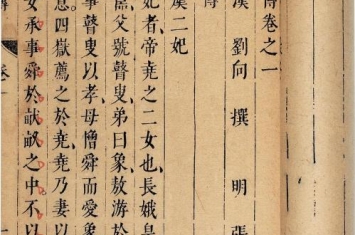 傳卷之一
漢 劉向 撰 明 張
傳
虞二妃
妃者帝堯之二女也長娥皇
父號瞽叟弟曰象敖游於
事瞽叟以孝母憎舜而愛象
息四嶽薦之於堯堯乃妻以
女承事舜於畎畝之中不以